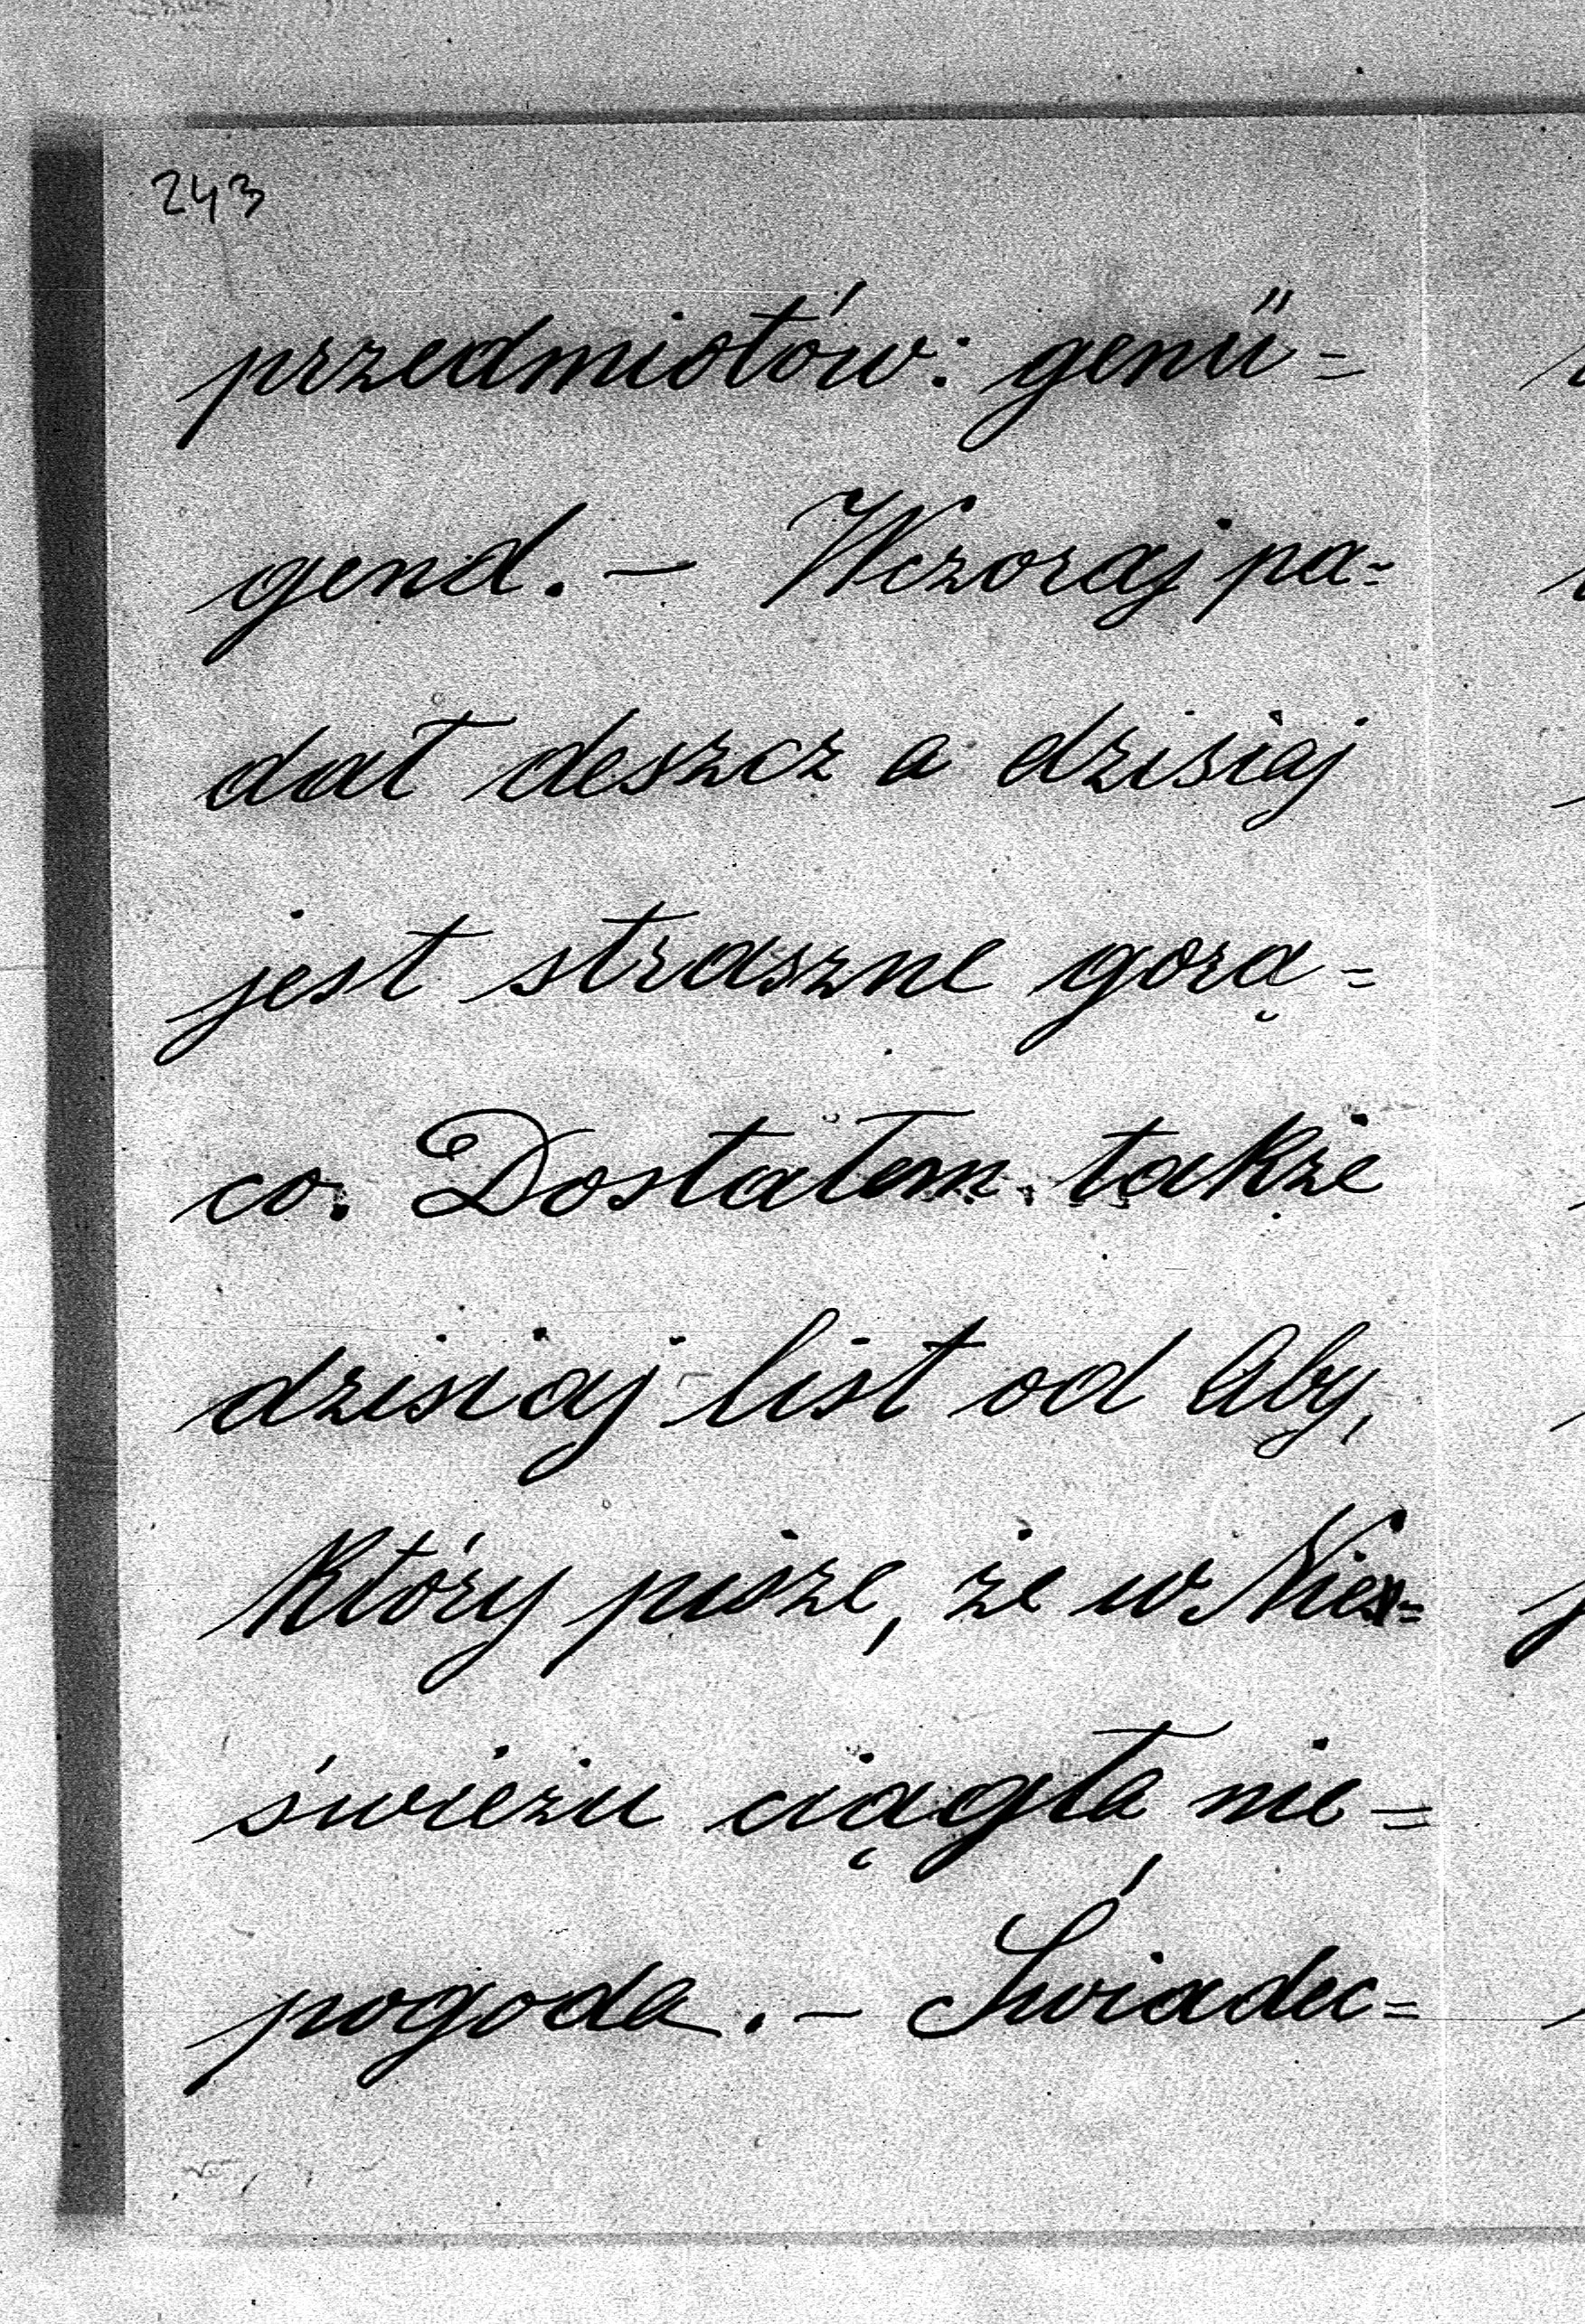 243
przedmiotów: genü=
gend. — Wczoraj pa=
dał deszcz a dzisiaj
jest straszne gorą=
co. Dostałem także
dzisiaj list od Aby,
który pisze, że w Nies=
świeżu ciągła nie=
pogoda. — Świadec=